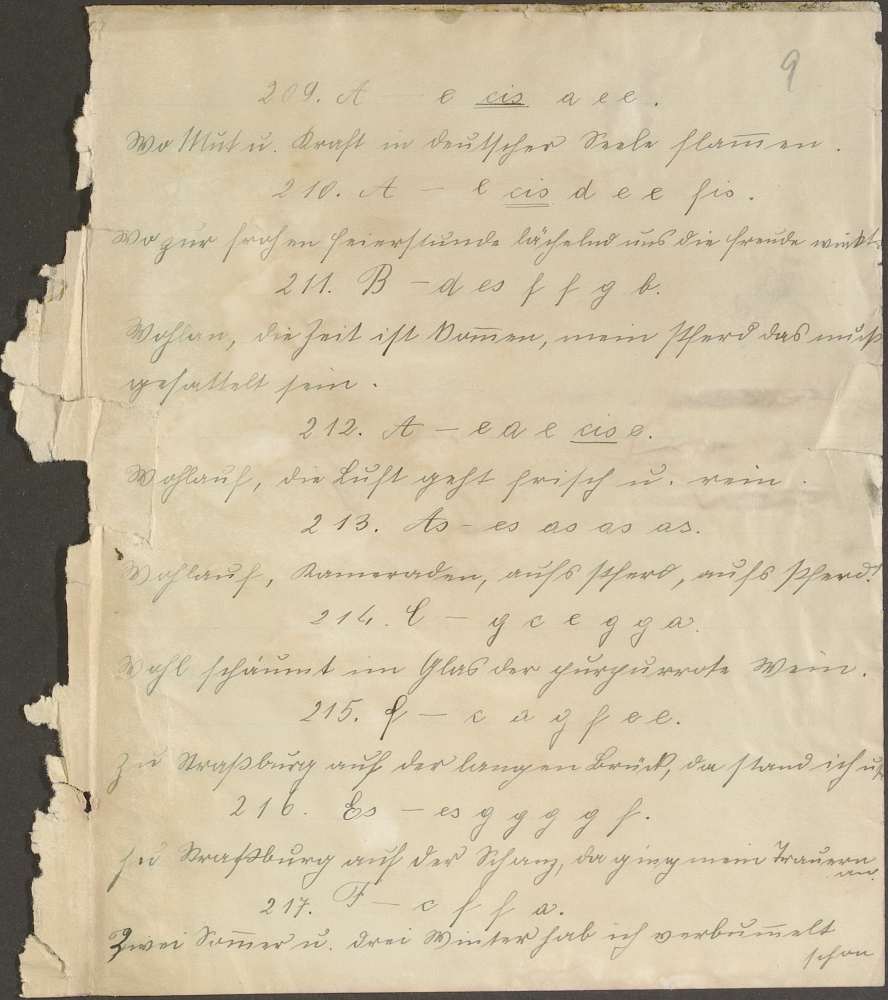 9
209. A — e cis a e e.
Wo Mut u. Kraft in deutscher Seele flam̄en.
210. A — e cis d e e fis.
Wo zur frohen Feierstunde lächelnd uns die Freude winkt.
211. B — d es f f g b.
Wohlan, die Zeit ist kom̄en, mein Pferd das muß
gesattelt sein.
212. A — e a e cis e.
Wohlauf, die Luft geht frisch u. rein.
213. As — es as as as.
Wohlauf, Kameraden, aufs Pferd, aufs Pferd!
214. C — g c e g g a.
Wohl schäumt im Glas der purpurrote Wein.
215. f — c a g f e e.
Zu Straßburg auf der langen Brück, da stand ich
216. Es — es g g g g f.
zu Straßburg auf der Schanz, da ging mein Trauern
an.
217. F — c f f a.
Zwei Som̄er u. drei Winter hab ich verbum̄elt
schon